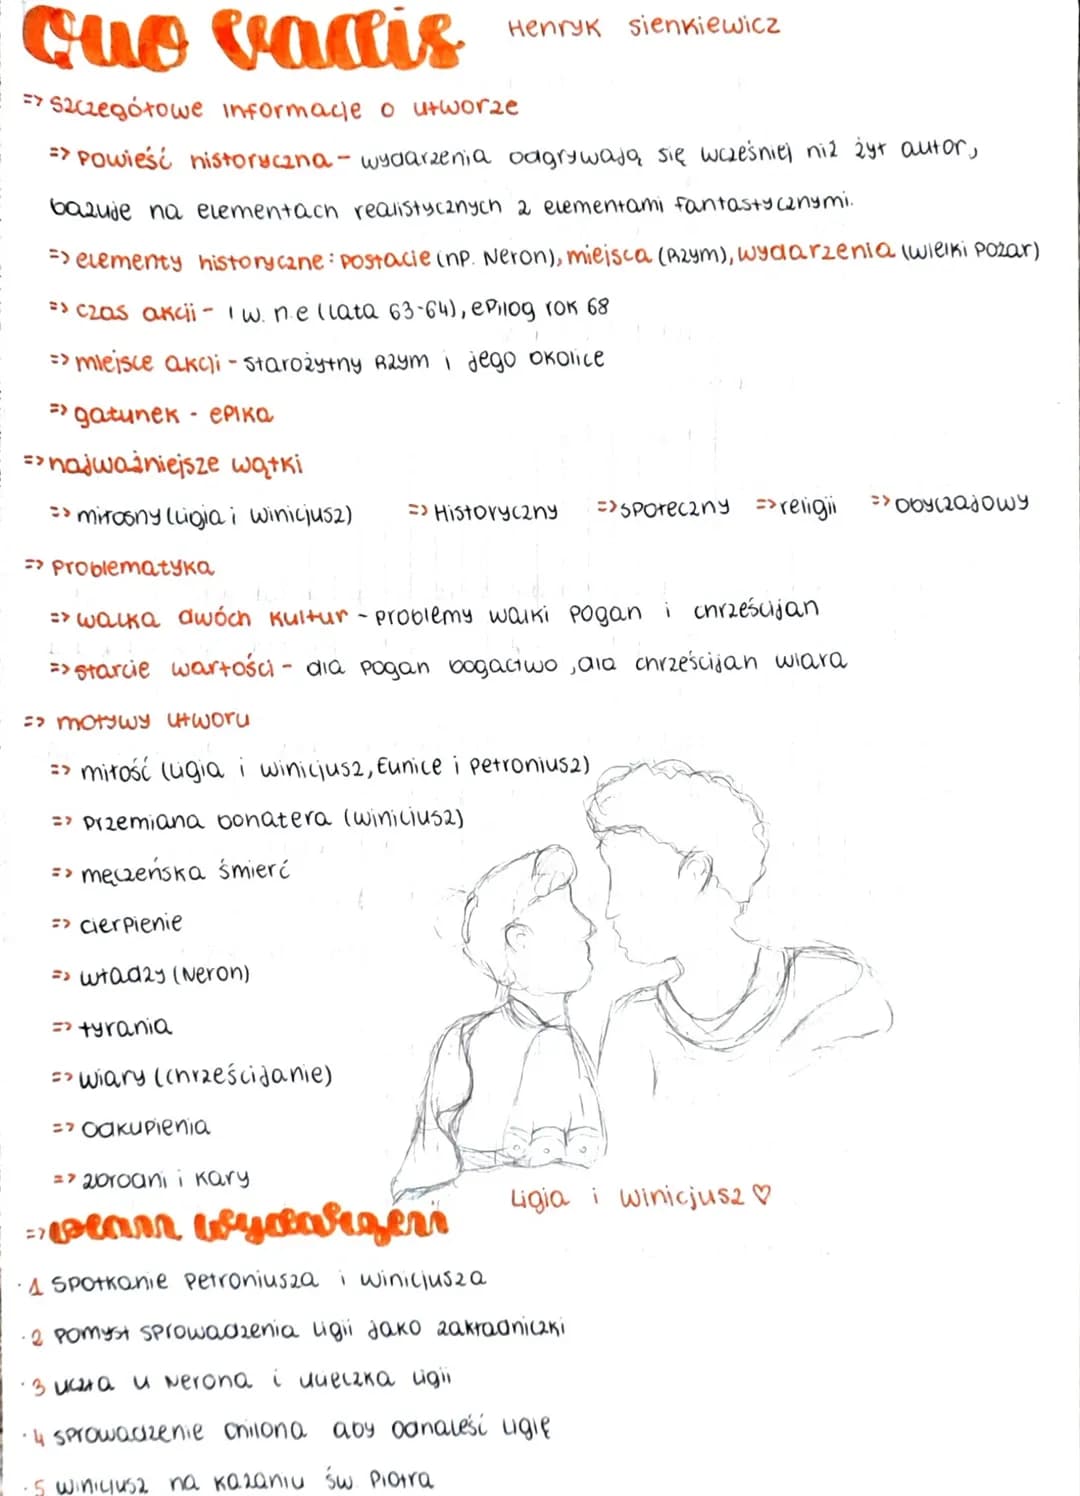 Quo vadis Henryk Sienkiewicz
=> szczegółowe informacje o utworze
=> powieść historyczna - wydarzenia odgrywają się wcześniej niż żył autor,
bazuje na elementach realistycznych z elementami fantastycznymi.
=> elementy historyczne: postacie (np. Neron), miejsca (Rzym), wydarzenia (wielki pożar)
=> czas akcji - I w. n.e (lata 63-64), epilog rok 68
=> miejsce akcji - starożytny Rzym i jego okolice
=> gatunek - epika
=> najważniejsze wątki
=> miłosny (Ligia i Winicjusz) => Historyczny => społeczny => religii => obyczajowy
=> problematyka
=> walka dwóch kultur - problemy walki pogan i chrześcijan
=> starcie wartości - dla pogan bogactwo, dla chrześcijan wiara
=> motywy utworu
=> miłość (Ligia i Winicjusz, Eunice i Petroniusz)
=> przemiana bohatera (Winicjusz)
=> męczeńska śmierć
=> cierpienie
=> władzy (Neron)
=> tyrania
=> wiary (chrześcijanie)
=> odkupienia
=> zbrodni i kary
Ligia i Winicjusz ♡
=> plan wydarzeń
·1 spotkanie Petroniusza i Winicjusza
·2 pomysł sprowadzenia Ligii jako zakładniczki
·3 uczta u Nerona i ucieczka Ligii
·4 sprowadzenie Chilona aby odnaleść Ligię
·5 Winicjusz na kazaniu św. Piotra